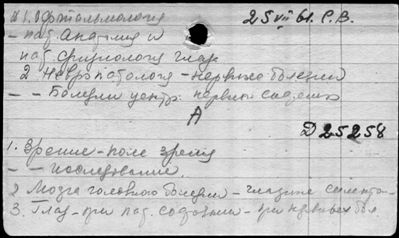 1. Офтальмология 25 VII 61. Р.В.
– пат. анатомия и
пат. физиология глаз
2 Невропатология – нервные болезни
– – Болезни центр. нервной
А
D 25258
1. Зрение – поле зрения
– – исследование.
2 Мозга головного болезни – глазные симпто-
3. Глаз – при пат. состояниях – при нервных бол.